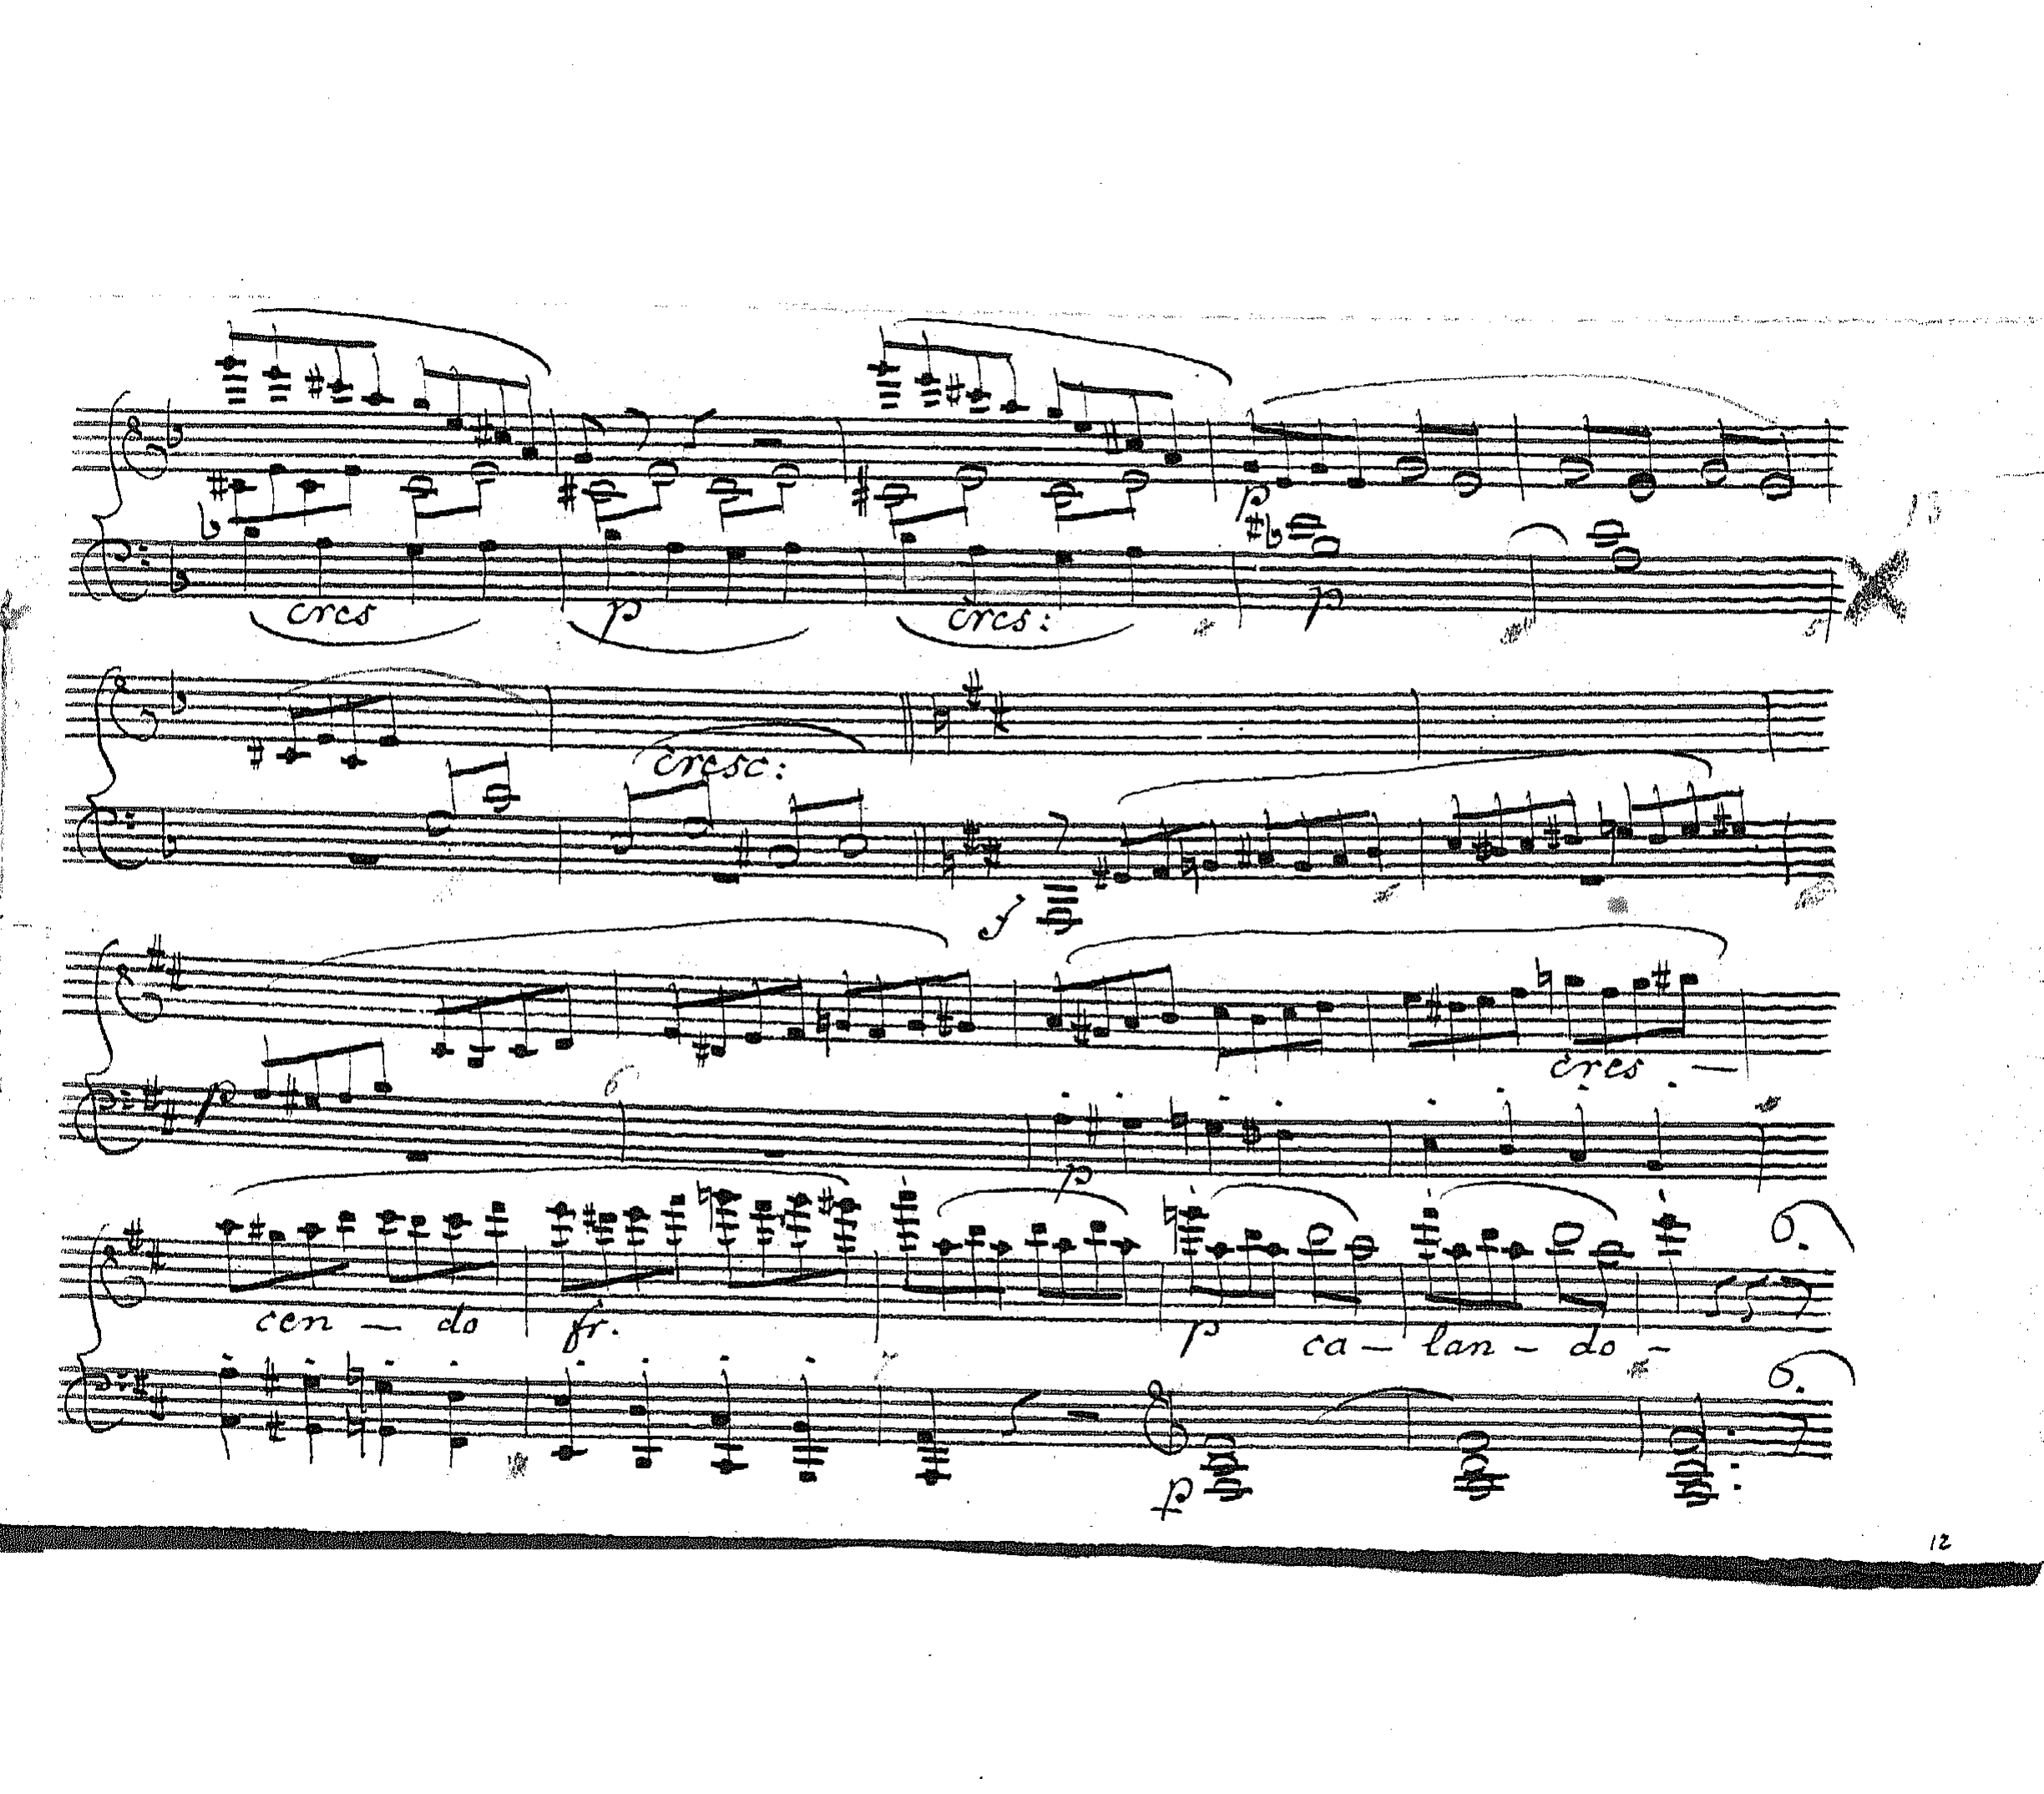 p
13
cres p cres: p
5
cresc:
f
cres —
p
6
p
cen — do fr. p ca — lan — do —
7
p
12